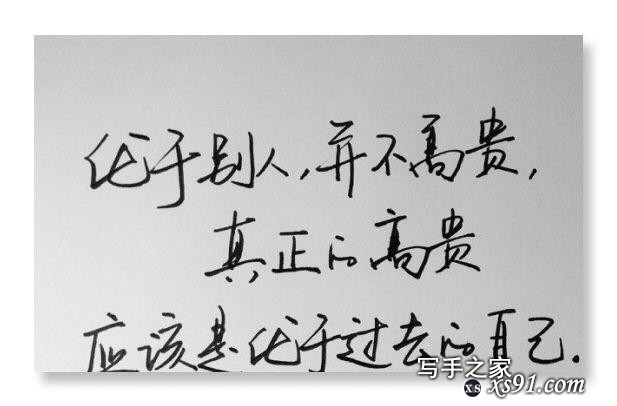 优于别人,并不高贵,
真正的高贵
应该是优于过去的自己.
写手之家
xs xs91.com